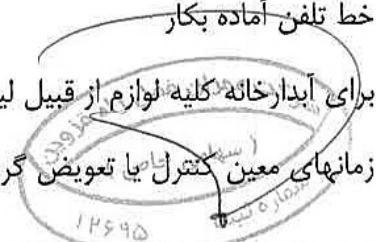 خط تلفن آماده بکار
برای آبدارخانه کلیه لوازم از قبیل لی
زمانهای معین کنترل یا تعویض گر
قزوین
(سهامی خاص)
شماره ثبت
۱۲۶۹۵